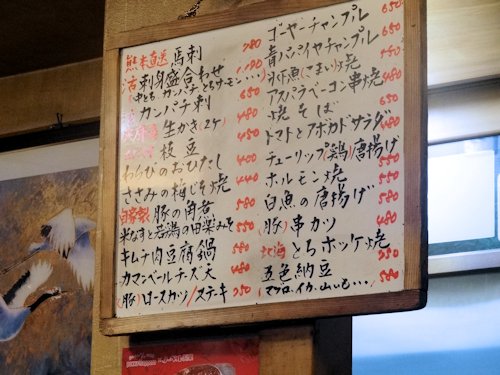 熊本直送 馬刺 780
活 刺身盛合わせ 1,180
カンパチ刺 650
生かき(2ケ) 480
枝豆 400
わらびのおひたし 440
ささみの梅じそ焼 480
自家製 豚の角煮 580
米なすと若鶏の田楽みそ 550
キムチ肉豆腐鍋 580
カマンベールチーズ天 480
(豚)ロースカツ/ステーキ 750
ゴーヤーチャンプル 650
青パパイヤチャンプル 650
氷下魚(こまい)焼
アスパラベーコン串焼 480
焼そば 650
トマトとアボカドサラダ 480
チューリップ(鶏)唐揚げ 550
ホルモン焼 550
白魚の唐揚げ 580
(豚)串カツ 480
北海 とろホッケ焼 750
五色納豆
(マグロ、イカ、山いも・・・) 580